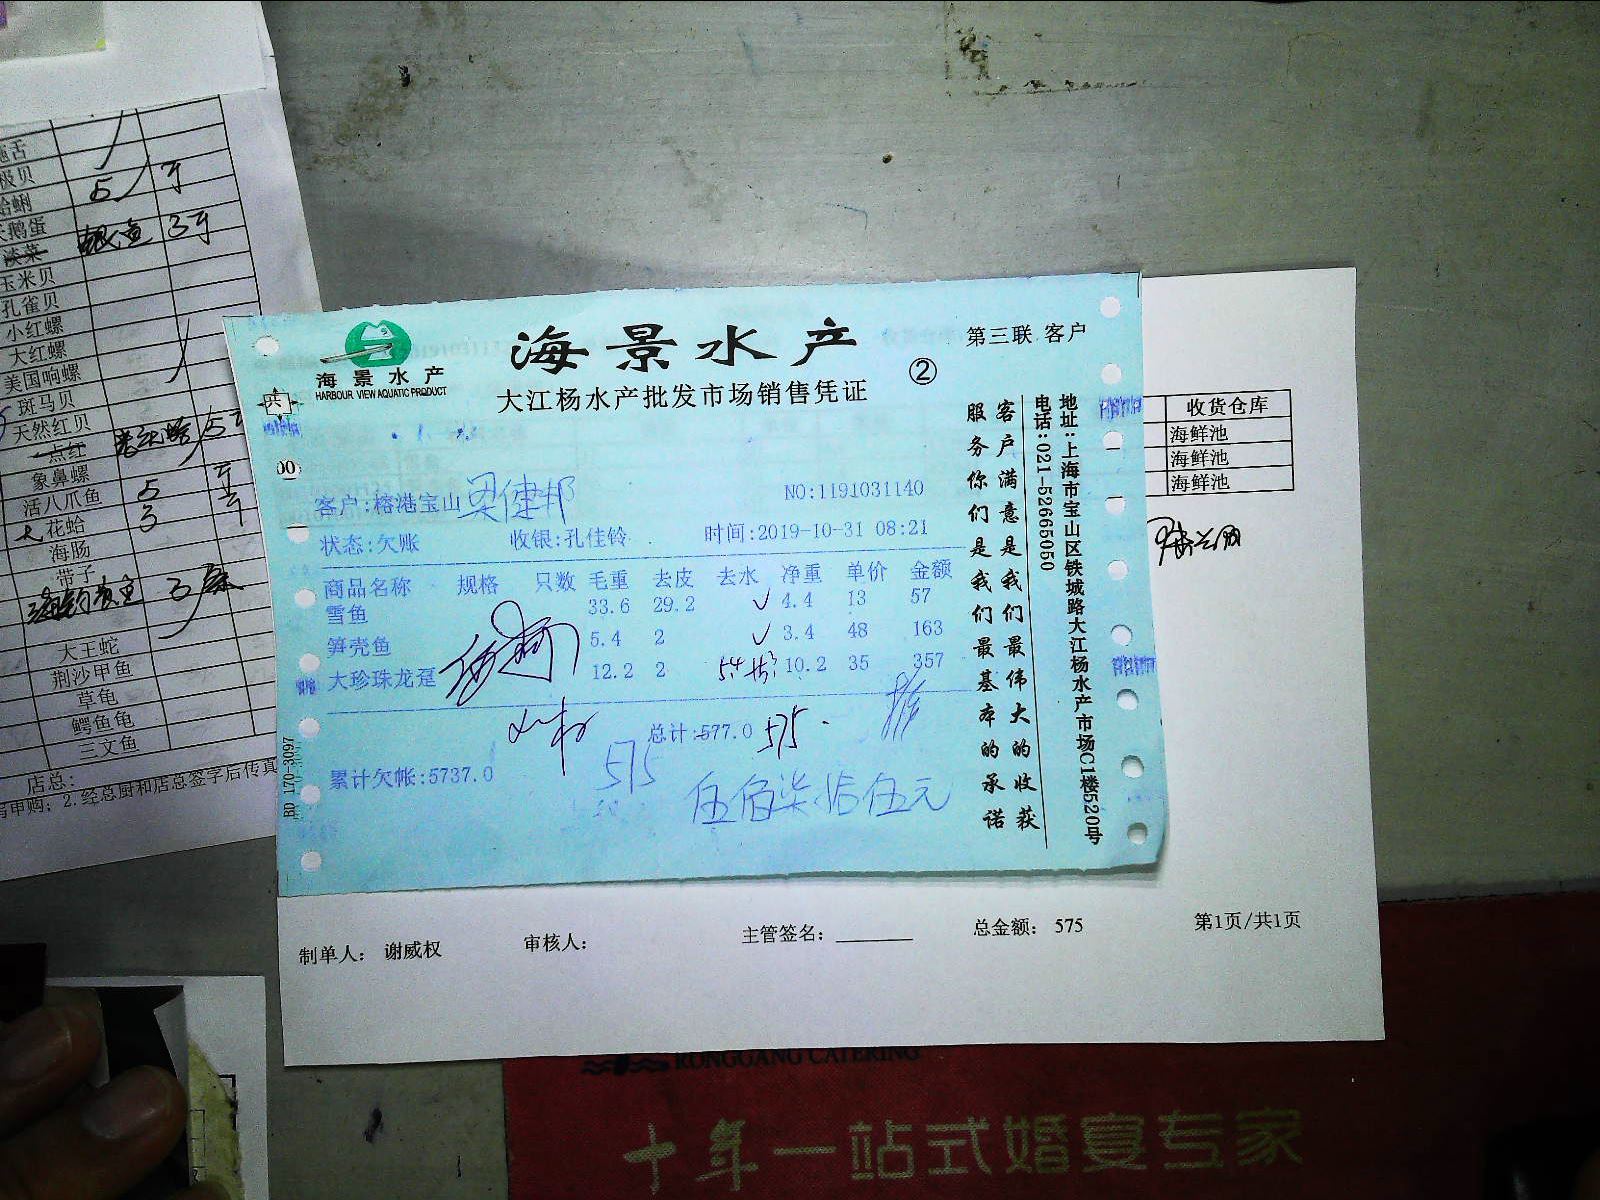 极贝
5 斤
蛤蜊
天鹅蛋
银鱼 3斤
淡菜
玉米贝
孔雀贝
小红螺
大红螺
美国响螺
斑马贝
天然红贝
一点红
象鼻螺
活八爪鱼 5 斤
花蛤 3 斤
海肠
带子
3
大王蛇
荆沙甲鱼
草龟
鳄鱼龟
三文鱼
店总:
2.经总厨和店总签字后传真
海景水产
HARBOUR VIEW AQUATIC PRODUCT
海景水产
大江杨水产批发市场销售凭证
②
第三联 客户
客户:榕港宝山 梁健邦
NO:1191031140
状态:欠账 收银:孔佳铃 时间:2019-10-31 08:21
商品名称 规格 只数 毛重 去皮 去水 净重 单价 金额
雪鱼 33.6 29.2 ✓ 4.4 13 57
笋壳鱼 5.4 2 ✓ 3.4 48 163
大珍珠龙趸 12.2 2 10.2 35 357
总计:577.0 575.
累计欠帐:5737.0
575
伍佰柒拾伍元
BD 170-3097
客户满意是我们最伟大的收获
服务你们是我们最基本的承诺
地址:上海市宝山区铁城路大江杨水产市场C1楼520号
电话:021-52665050
收货仓库
海鲜池
海鲜池
海鲜池
制单人: 谢威权 审核人: 主管签名: 总金额: 575 第1页/共1页
RONGGANG CATERING
十年一站式婚宴专家